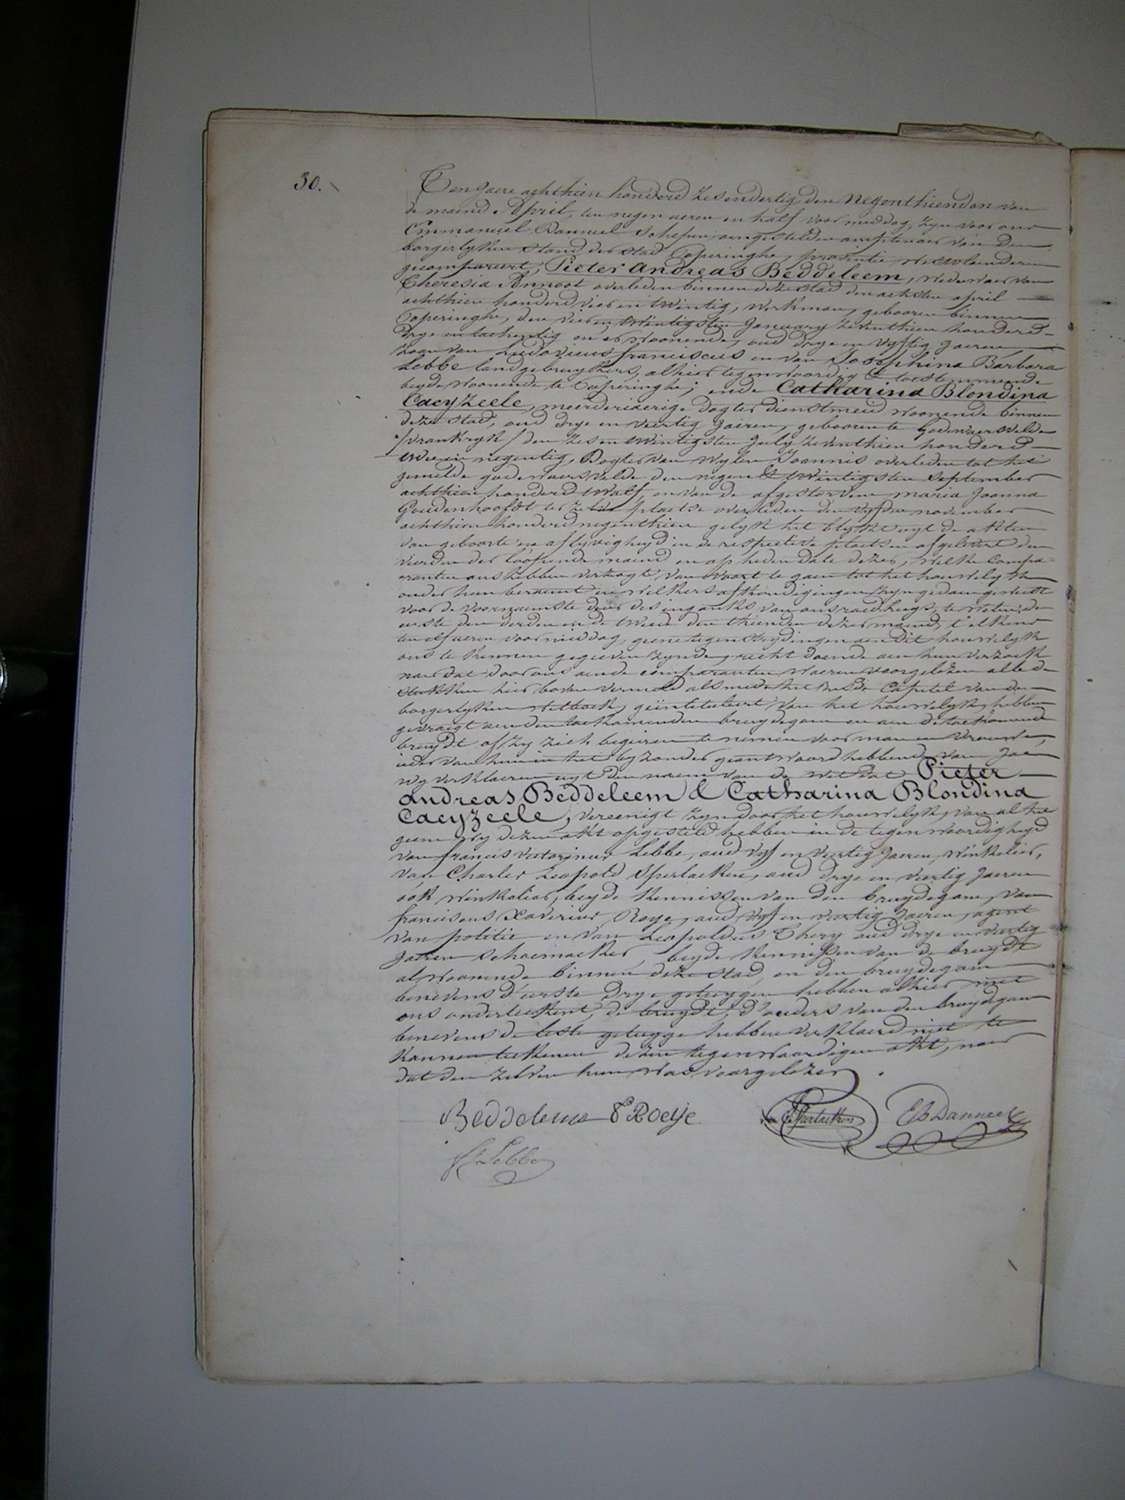 30.
Ten jaere achthien honderd zesendertig den negenthienden van
de maend April, ten negen ueren en half voor middag, zyn voor ons
Emmanuel Danneel Schepen aengestelden amptenaer van den
borgerlyken stand der stad Poperinghe, provintie Westvlaenderen
gecompareert, Pieter Andreas Beddeleem, weduwaer van
Theresia Annoot overleden binnen deze stad den achsten april
achthien honderd vier en twintig, werkman, geboren binnen
Poperinghe, den vier en twintigsten January zeventhien honderd
drye en tachentig en er woonende, oud drye en vyftig jaeren,
zoon van Ludovicus franciscus en van Josephina Barbara
Lebbe landgebruykers, alhier tegenwoordig en toestemmende
beyde woonende te Poperinghe; ende Catharina Blondina
Caeyzeele, meerderjaerige dogter dienstmeid woonende binnen
deze stad, oud drye en veertig jaeren, geboren te Godewaersvelde
/vrankryk/ den zes en twintigsten July zeventhien honderd
twee en negentig, Dogter van wylen Joannis overleden tot het
gemelde godewaersvelde, den negen en twintigsten September
achthien honderd twaelf, en van de afgestorvene maria Joanna
Goudenhoofdt ter zelve plaetse overleden den vyfden november
achthien honderd negenthien gelyk het blykt uyt de akten
van geboorte en aflyvigheyd in de respective plaetsen afgelevert den
vierden der loopende maend en op heden date dezer, welke compa-
ranten ons hebben verzogt, van voort te gaen tot het houwelyk
onder hun beraemt en welkers afkondigingen zyn gedaen geweest
voor de voornaemste deur des ingangs van ons raedhuys, te weten: de
eerste den derden en de tweede den thienden dezer maend, t'elkens
ten elf ueren voor middag, geene tegenstrydingen aen dit houwelyk
ons te kennen gegeven zynde, recht doende aen hun verzoek
naer dat door ons aen de comparanten waeren voorgelezen alle de
stukken hier boven vermeld als mede het zesde Capitel van den
borgerlyken wetboek, geïntituleert, van het houwelyk, hebben
gevraegt aen den toekomenden bruydegom en aen de toekomende
bruydt of zy zich begeiren te nemen voor man en vrouwe,
ieder van hun in het byzonder geantwoord hebbende van Jae
wy verklaeren uyt den naem van de wet dat Pieter
Andreas Beddeleem & Catharina Blondina
Caeyzeele, vereenigt zyn door het houwelyk, van al het
geene wy dezen akt opgesteld hebben in de tegenwoordigheyd
van francis victorinus Lebbe, oud vyf en veertig jaeren, winkelier,
van Charles Leopold Sperlaeken, oud drye en veertig jaeren
ook winkelier, beyde kennissen van den bruydegom, van
franciscus Xaverius Roeye, oud vyf en veertig jaeren, agent
van politie en van Leopoldus Thery oud drye en veertig
jaeren schoenmaeker, beyde kennissen van de bruydt
al woonende binnen deze stad, en den bruydegom
benevens d'eerste drye getuygen hebben alhier met
ons onderteekent, de bruydt, d'ouders van den bruydegom
benevens de leste getuyge hebben verklaerd niet te
konnen teekenen dezen tegenwoordigen akt, naer
dat den zelven hun was voorgelezen.
Beddeleem F Roeije C Sperlaeken E B Danneel
f V Lebbe